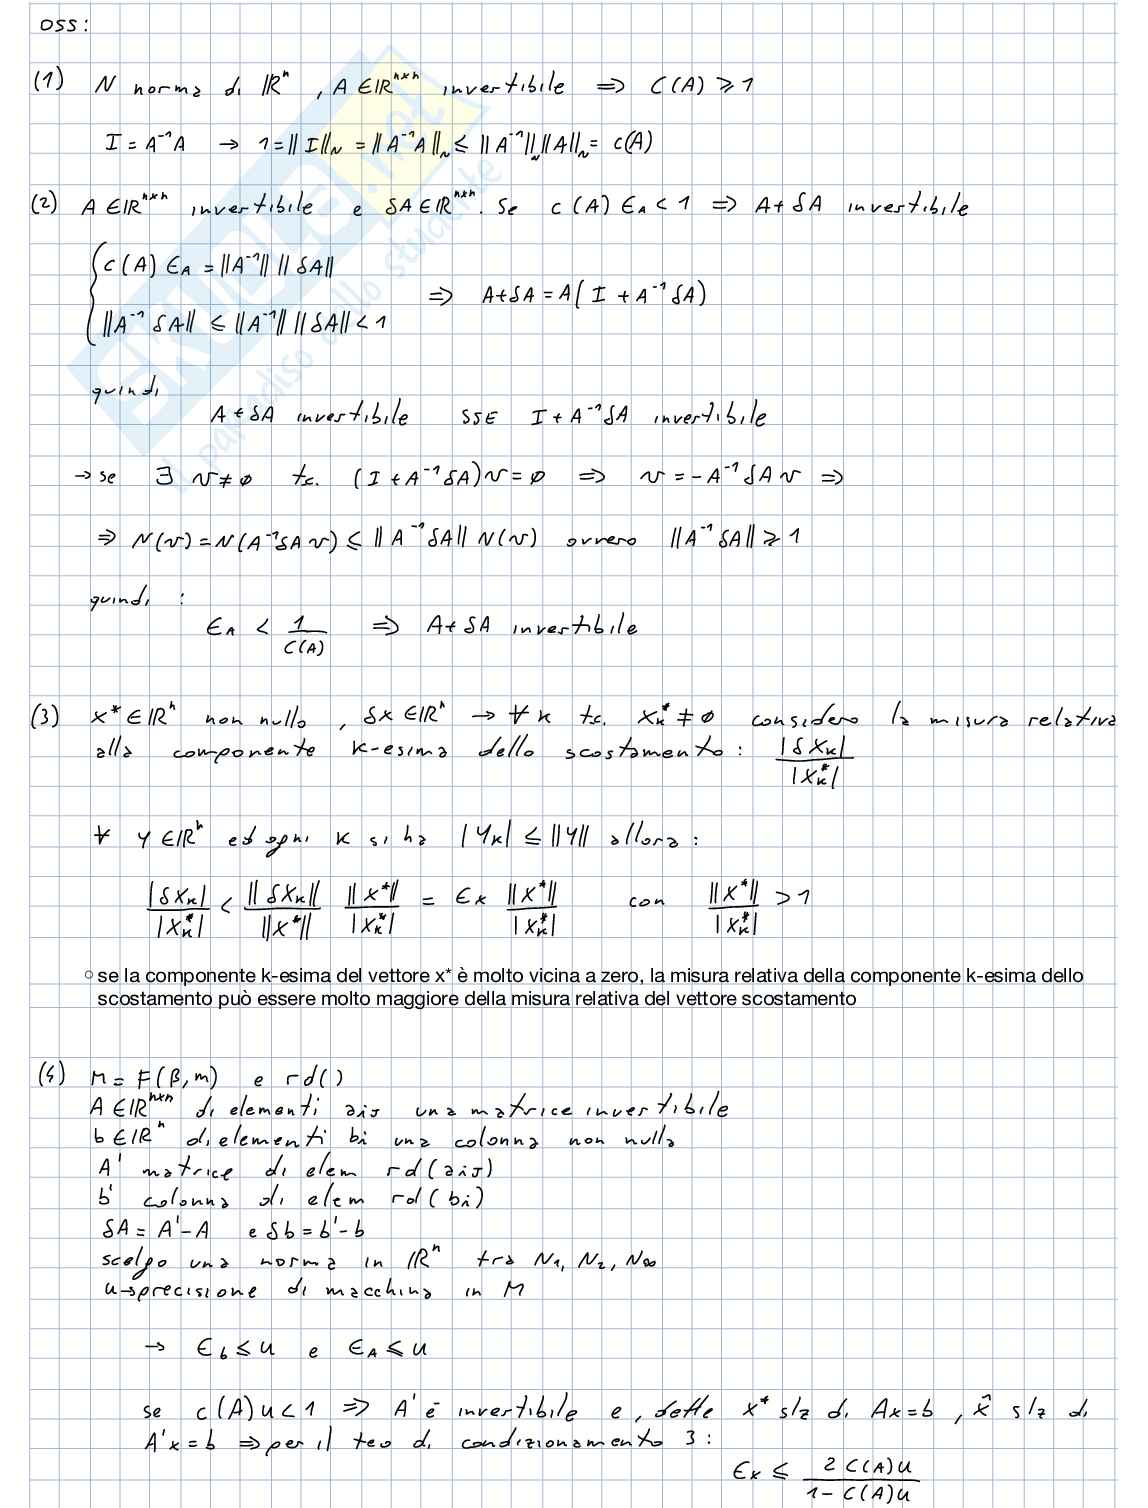 OSS:
(1) N norma di ℝⁿ, A ∈ ℝⁿˣⁿ invertibile ⇒ C(A) ⩾ 1
I = A⁻¹A → 1 = ‖I‖_N = ‖A⁻¹A‖_N ≤ ‖A⁻¹‖_N ‖A‖_N = c(A)
(2) A ∈ ℝⁿˣⁿ invertibile e δA ∈ ℝⁿˣⁿ. Se c(A) ϵ_A < 1 ⇒ A + δA invertibile
{ c(A) ϵ_A = ‖A⁻¹‖ ‖δA‖
‖A⁻¹ δA‖ ≤ ‖A⁻¹‖ ‖δA‖ < 1 ⇒ A + δA = A(I + A⁻¹ δA)
quindi
A + δA invertibile SSE I + A⁻¹ δA invertibile
→ se ∃ v ≠ ø t.c. (I + A⁻¹ δA) v = ø ⇒ v = -A⁻¹ δA v ⇒
⇒ N(v) = N(A⁻¹ δA v) ≤ ‖A⁻¹ δA‖ N(v) ovvero ‖A⁻¹ δA‖ ⩾ 1
quindi :
ϵ_A < 1/C(A) ⇒ A + δA invertibile
(3) x* ∈ ℝⁿ non nullo, δx ∈ ℝⁿ → ∀ k t.c. x_k* ≠ ø considero la misura relativa
alla componente k-esima dello scostamento : |δx_k| / |x_k*|
∀ y ∈ ℝⁿ ed ogni k si ha |y_k| ≤ ‖y‖ allora :
|δx_k| / |x_k*| < ‖δx_k‖ / ‖x*‖ ‖x*‖ / |x_k*| = ϵ_x ‖x*‖ / |x_k*| con ‖x*‖ / |x_k*| > 1
○ se la componente k-esima del vettore x* è molto vicina a zero, la misura relativa della componente k-esima dello
scostamento può essere molto maggiore della misura relativa del vettore scostamento
(4) M = F(β, m) e rd()
A ∈ ℝⁿˣⁿ di elementi aij una matrice invertibile
b ∈ ℝⁿ di elementi bi una colonna non nulla
A' matrice di elem rd(aij)
b' colonna di elem rd(bi)
δA = A' - A e δb = b' - b
scelgo una norma in ℝⁿ tra N₁, N₂, N∞
u → precisione di macchina in M
→ ϵ_b ≤ u e ϵ_A ≤ u
se c(A) u < 1 ⇒ A' è invertibile e, dette x* slz di Ax = b, x̂ slz di
A'x = b ⇒ per il teo di condizionamento 3 :
ϵ_x ≤ 2 C(A) u / 1 - C(A) u
SKUOLA.net
il paradiso dello studente